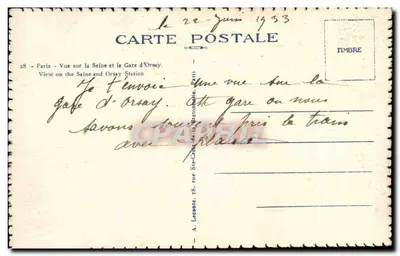 le 22 Juin 1933
CARTE POSTALE
TIMBRE
28 - Paris - Vue sur la Seine et la Gare d'Orsay
View on the Seine and Orsay Station
Je t'envoie une vue sur la
gare d'Orsay. gare ou nous
savons souvent pris le train
avec
A. Leconte, 18, rue Ste-Croix-de-la-Bretonnerie, Paris